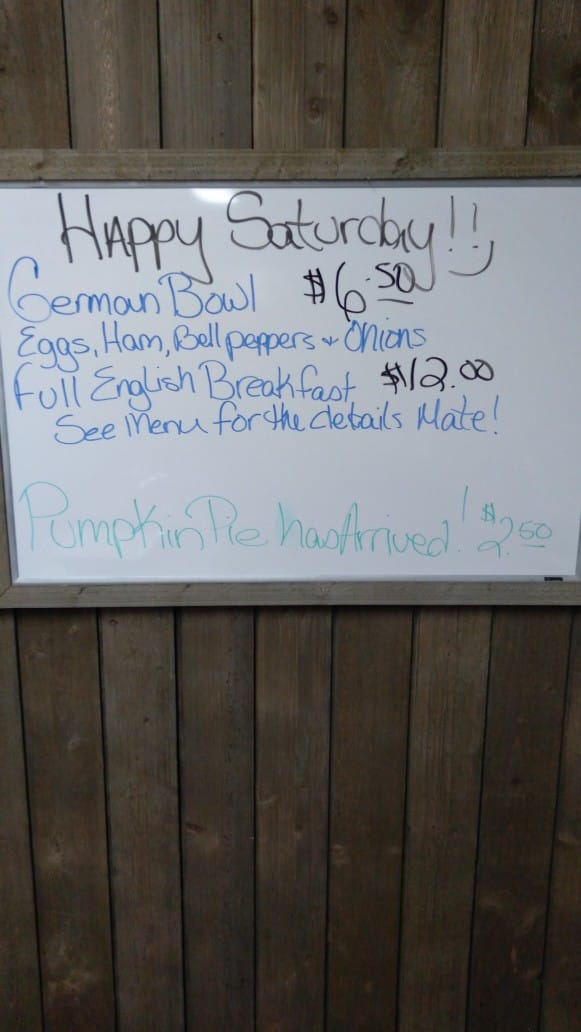 Happy Saturday!!
German Bowl $6.50
Eggs, Ham, Bell peppers + Onions
Full English Breakfast $12.00
See Menu for the details Mate!
Pumpkin Pie has Arrived! $2.50